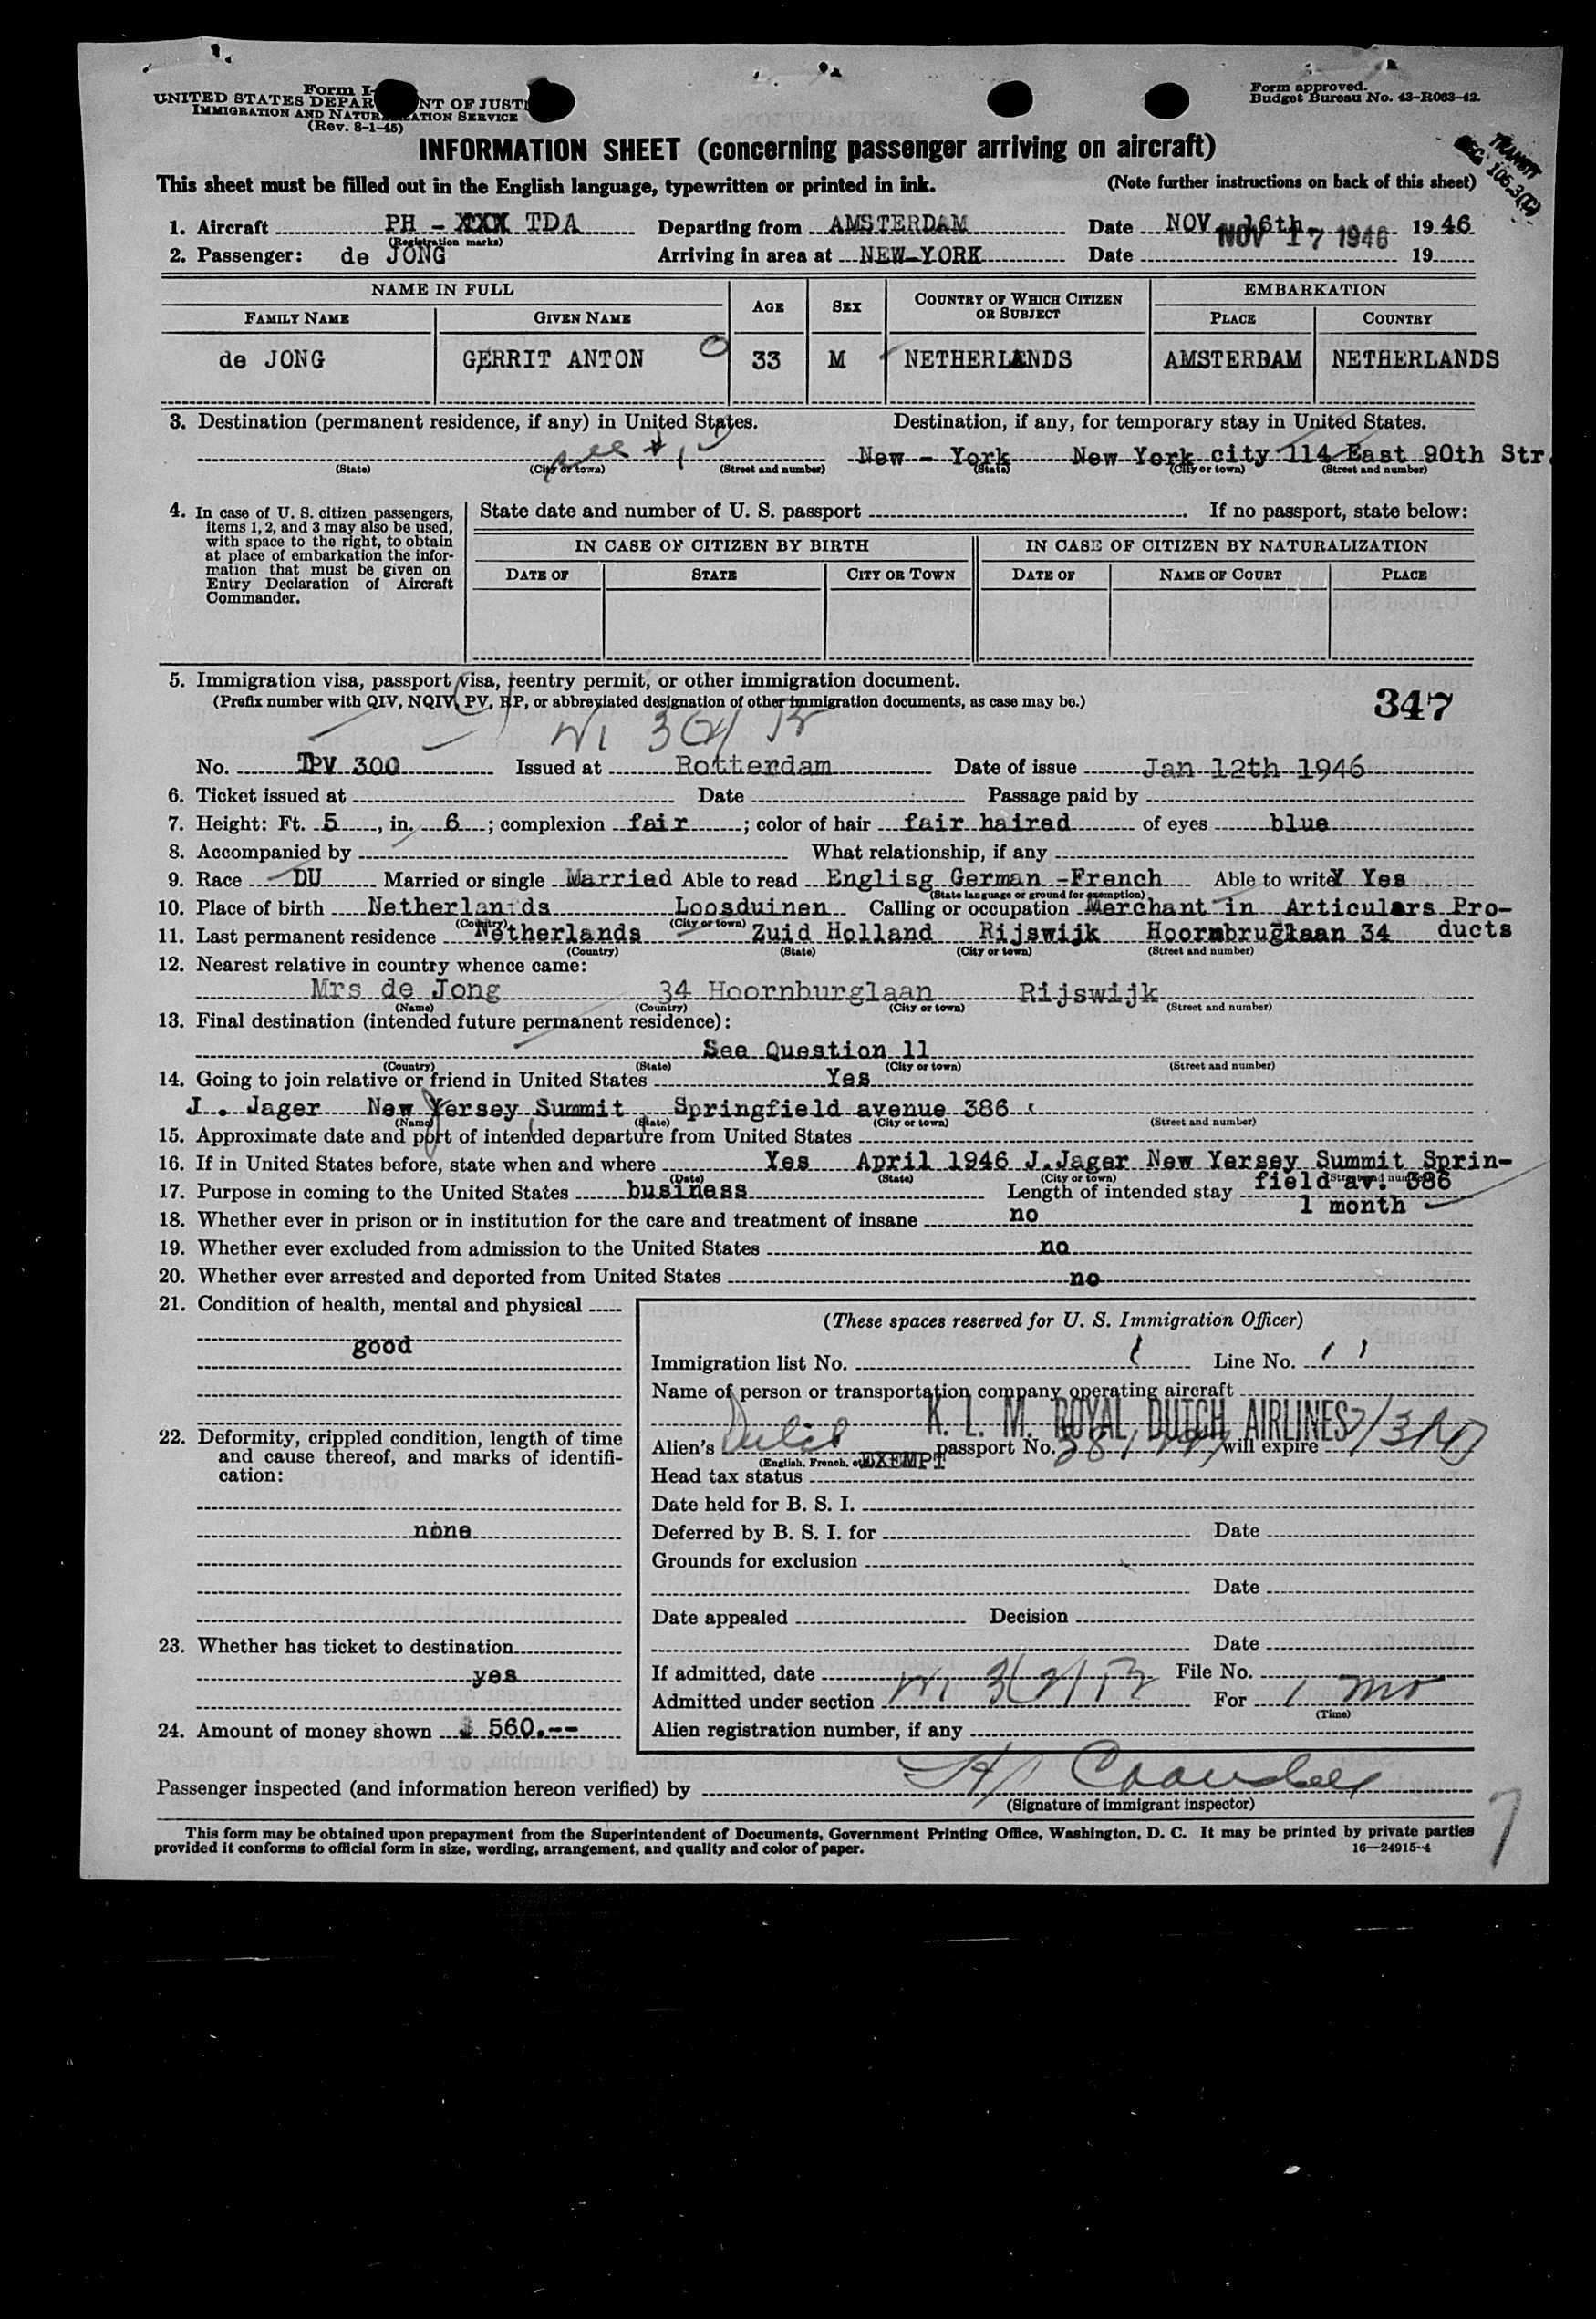 Form I-
UNITED STATES DEPAR NT OF JUSTI
IMMIGRATION AND NATUR ATION SERVICE
(Rev. 8-1-45)
Form approved.
Budget Bureau No. 43-R063-42.
INFORMATION SHEET (concerning passenger arriving on aircraft)
TRANSIT
This sheet must be filled out in the English language, typewritten or printed in ink. (Note further instructions on back of this sheet)
1. Aircraft PH - XXX TDA Departing from AMSTERDAM Date NOV 16th 19 46
(Registration marks)
2. Passenger: de JONG Arriving in area at NEW-YORK Date NOV 17 1946 19
NAME IN FULL AGE SEX COUNTRY OF WHICH CITIZEN OR SUBJECT EMBARKATION
FAMILY NAME GIVEN NAME PLACE COUNTRY
de JONG GERRIT ANTON 33 M NETHERLANDS AMSTERDAM NETHERLANDS
3. Destination (permanent residence, if any) in United States. Destination, if any, for temporary stay in United States.
see # New - York New York city 114 East 90th Str.
(State) (City or town) (Street and number) (State) (City or town) (Street and number)
4. In case of U. S. citizen passengers, items 1, 2, and 3 may also be used, with space to the right, to obtain at place of embarkation the information that must be given on Entry Declaration of Aircraft Commander.
State date and number of U. S. passport If no passport, state below:
IN CASE OF CITIZEN BY BIRTH IN CASE OF CITIZEN BY NATURALIZATION
DATE OF STATE CITY OR TOWN DATE OF NAME OF COURT PLACE
5. Immigration visa, passport visa, reentry permit, or other immigration document.
(Prefix number with QIV, NQIV, PV, RP, or abbreviated designation of other immigration documents, as case may be.)
347
No. TPV 300 Issued at Rotterdam Date of issue Jan 12th 1946
6. Ticket issued at Date Passage paid by
7. Height: Ft. 5, in. 6; complexion fair; color of hair fair haired of eyes blue
8. Accompanied by What relationship, if any
9. Race DU Married or single Married Able to read Englisg German -French Able to write Y Yes
(State language or ground for exemption)
10. Place of birth Netherlands Loosduinen Calling or occupation Merchant in Articulars Pro-
(Country) (City or town) ducts
11. Last permanent residence Netherlands Zuid Holland Rijswijk Hoornbruglaan 34
(Country) (State) (City or town) (Street and number)
12. Nearest relative in country whence came:
Mrs de Jong 34 Hoornburglaan Rijswijk
(Name) (Country) (City or town) (Street and number)
13. Final destination (intended future permanent residence):
See Question 11
(Country) (State) (City or town) (Street and number)
14. Going to join relative or friend in United States Yes
J . Jager New Yersey Summit Springfield avenue 386
(Name) (State) (City or town) (Street and number)
15. Approximate date and port of intended departure from United States
16. If in United States before, state when and where Yes April 1946 J.Jager New Yersey Summit Sprin-
(Date) (State) (City or town) (Street and number) field av. 386
17. Purpose in coming to the United States business Length of intended stay 1 month
18. Whether ever in prison or in institution for the care and treatment of insane no
19. Whether ever excluded from admission to the United States no
20. Whether ever arrested and deported from United States no
21. Condition of health, mental and physical
good
22. Deformity, crippled condition, length of time and cause thereof, and marks of identification:
none
23. Whether has ticket to destination
yes
24. Amount of money shown $ 560.--
(These spaces reserved for U. S. Immigration Officer)
Immigration list No. 1 Line No. 11
Name of person or transportation company operating aircraft
K. L. M. ROYAL DUTCH AIRLINES
Alien's Dutch passport No. will expire
(English, French, etc.)
Head tax status EXEMPT
Date held for B. S. I.
Deferred by B. S. I. for Date
Grounds for exclusion
Date
Date appealed Decision
Date
If admitted, date File No.
Admitted under section 3(2) For 1 mo
(Time)
Alien registration number, if any
Passenger inspected (and information hereon verified) by
(Signature of immigrant inspector)
This form may be obtained upon prepayment from the Superintendent of Documents, Government Printing Office, Washington, D. C. It may be printed by private parties
provided it conforms to official form in size, wording, arrangement, and quality and color of paper. 16—24915-4
7